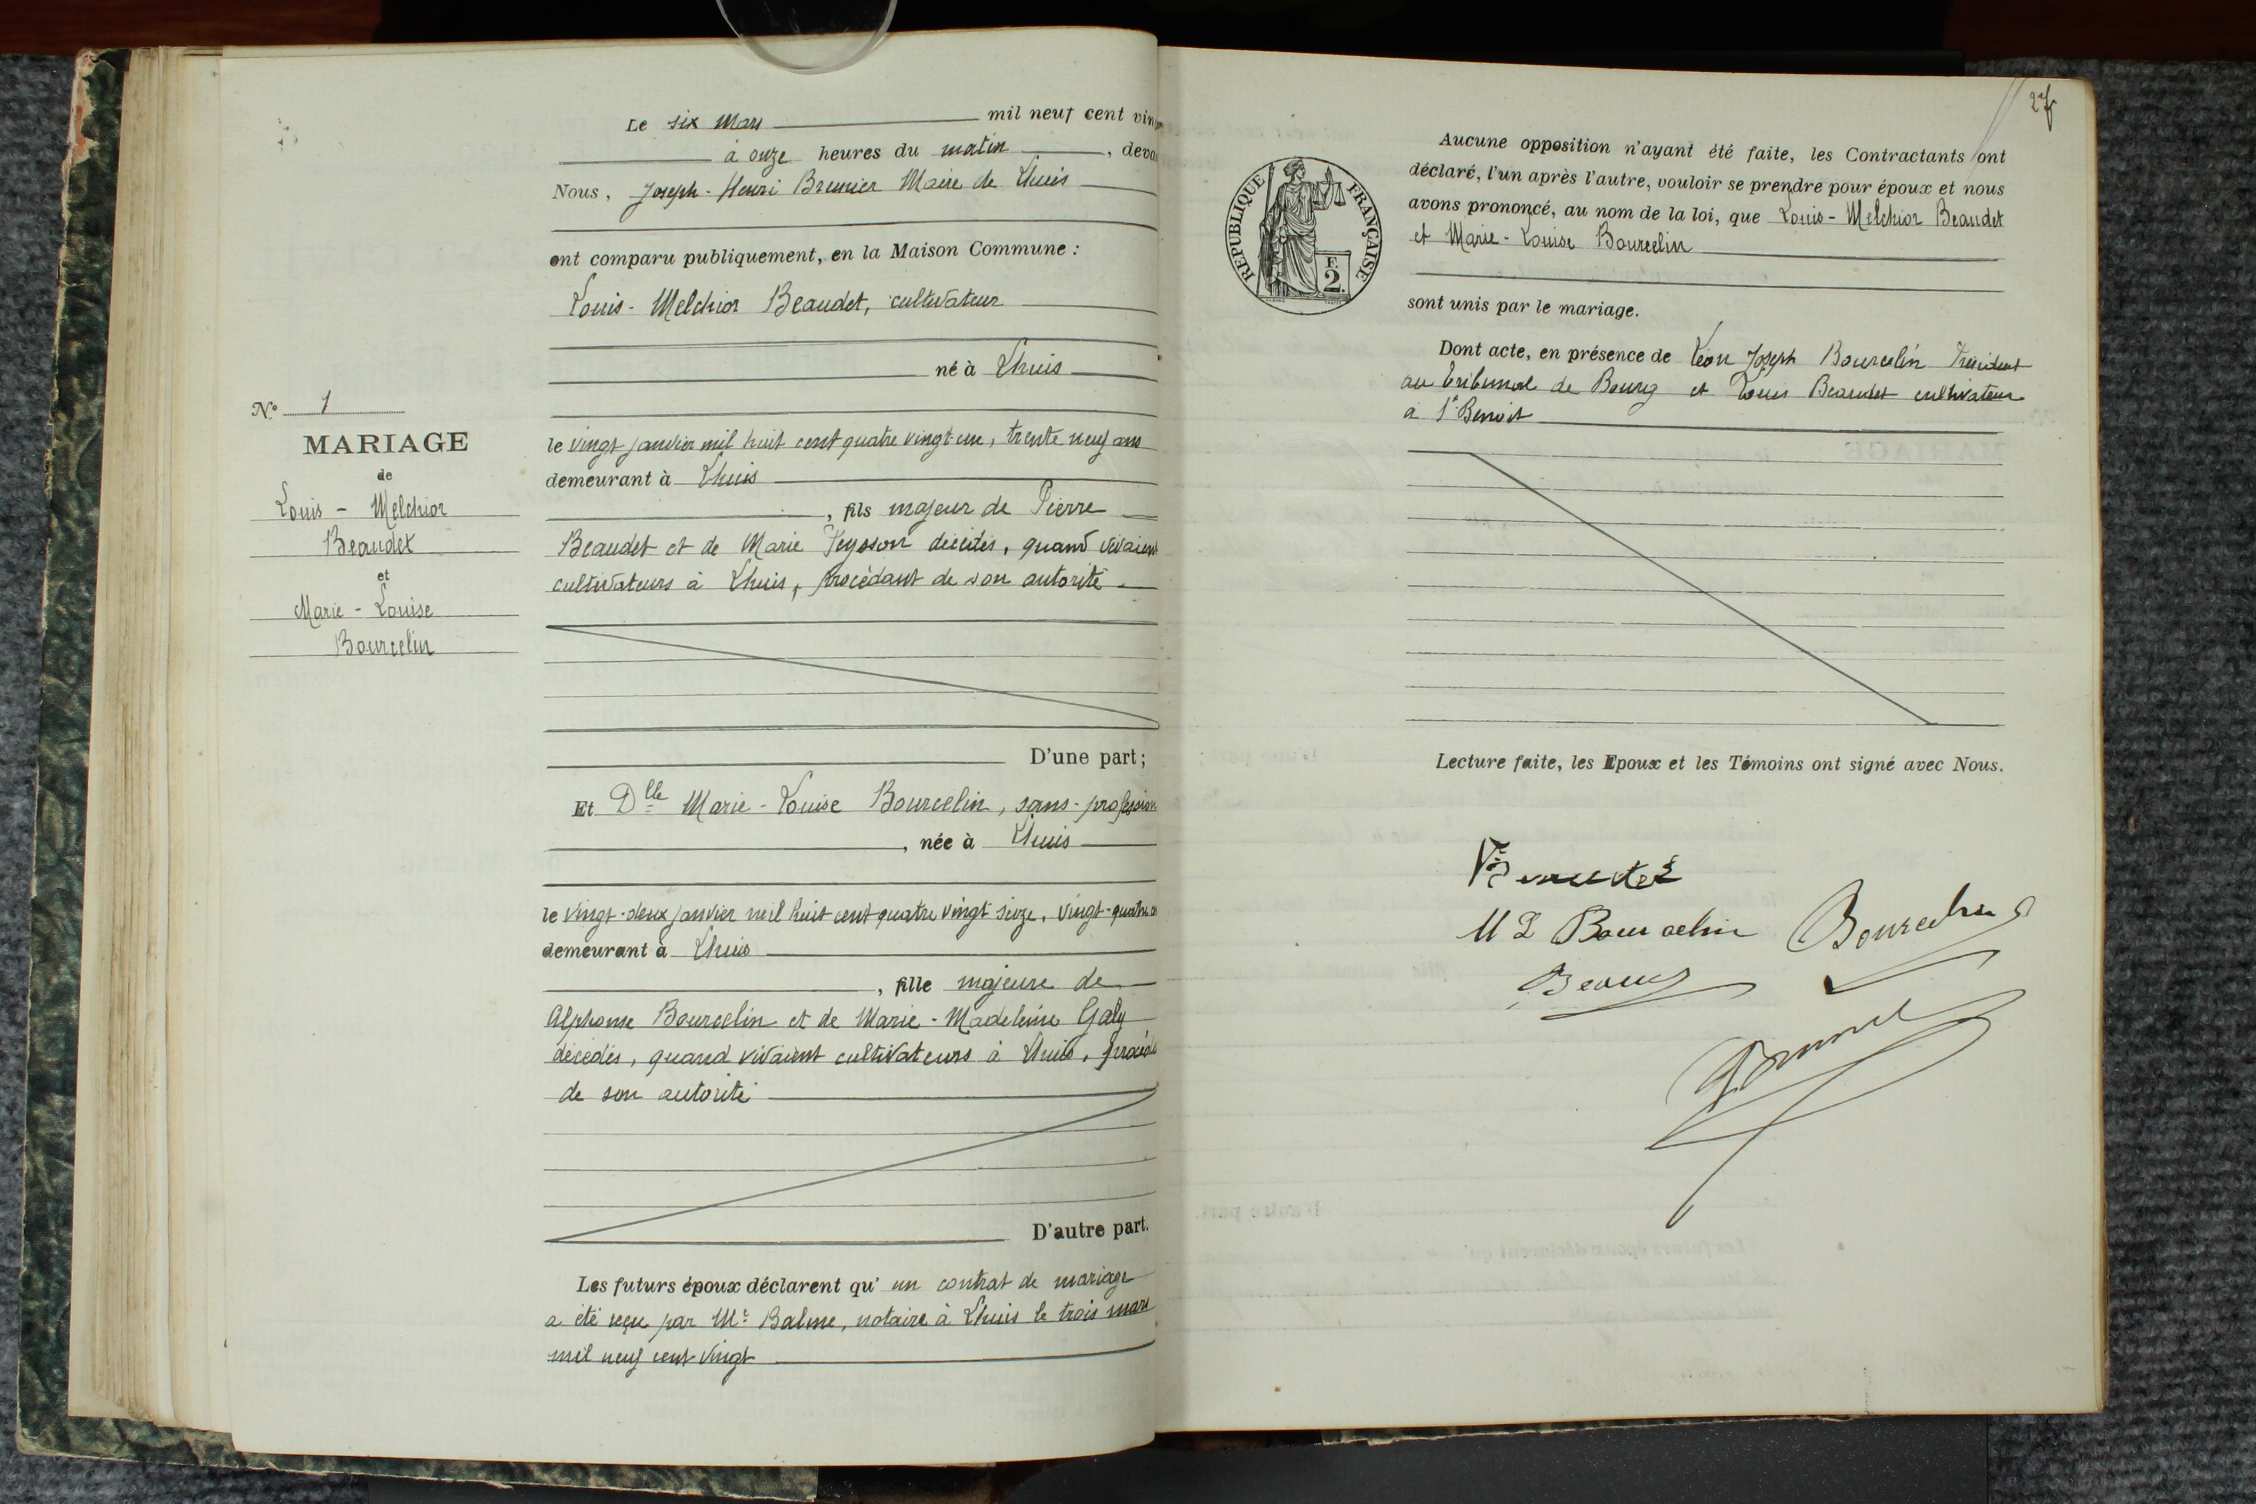 N.° 1
MARIAGE
de
Louis - Melchior
Beaudet
et
Marie - Louise
Bourcelin
Le six mars mil neuf cent vin
à onze heures du matin, deva
Nous, Joseph - Henri Brunier Maire de Lhuis
ont comparu publiquement, en la Maison Commune :
Louis - Melchior Beaudet, cultivateur
né à Lhuis
le vingt janvier mil huit cent quatre vingt-un, trente neuf ans
demeurant à Lhuis
, fils majeur de Pierre
Beaudet et de Marie Peysson décédés, quand vivaient
cultivateurs à Lhuis, procédant de son autorité
D'une part ;
Et Dlle Marie - Louise Bourcelin, sans - profession
, née à Lhuis
le vingt-deux janvier mil huit cent quatre vingt seize, vingt-quatre a
demeurant à Lhuis
, fille majeure de
Alphonse Bourcelin et de Marie - Madeleine Galy
décédés, quand vivaient cultivateurs à Lhuis, procéd
de son autorité
D'autre part.
Les futurs époux déclarent qu' un contrat de mariage
a été reçu par Me Balme, notaire à Lhuis le trois mars
mil neuf cent vingt
27
RÉPUBLIQUE FRANÇAISE
F.
2.
Aucune opposition n'ayant été faite, les Contractants ont
déclaré, l'un après l'autre, vouloir se prendre pour époux et nous
avons prononcé, au nom de la loi, que Louis - Melchior Beaudet
et Marie - Louise Bourcelin
sont unis par le mariage.
Dont acte, en présence de Léon Joseph Bourcelin Président
au Tribunal de Bourg et Louis Beaudet cultivateur
à St Benoit
Lecture faite, les Epoux et les Témoins ont signé avec Nous.
M L Bourcelin
Bourcelin